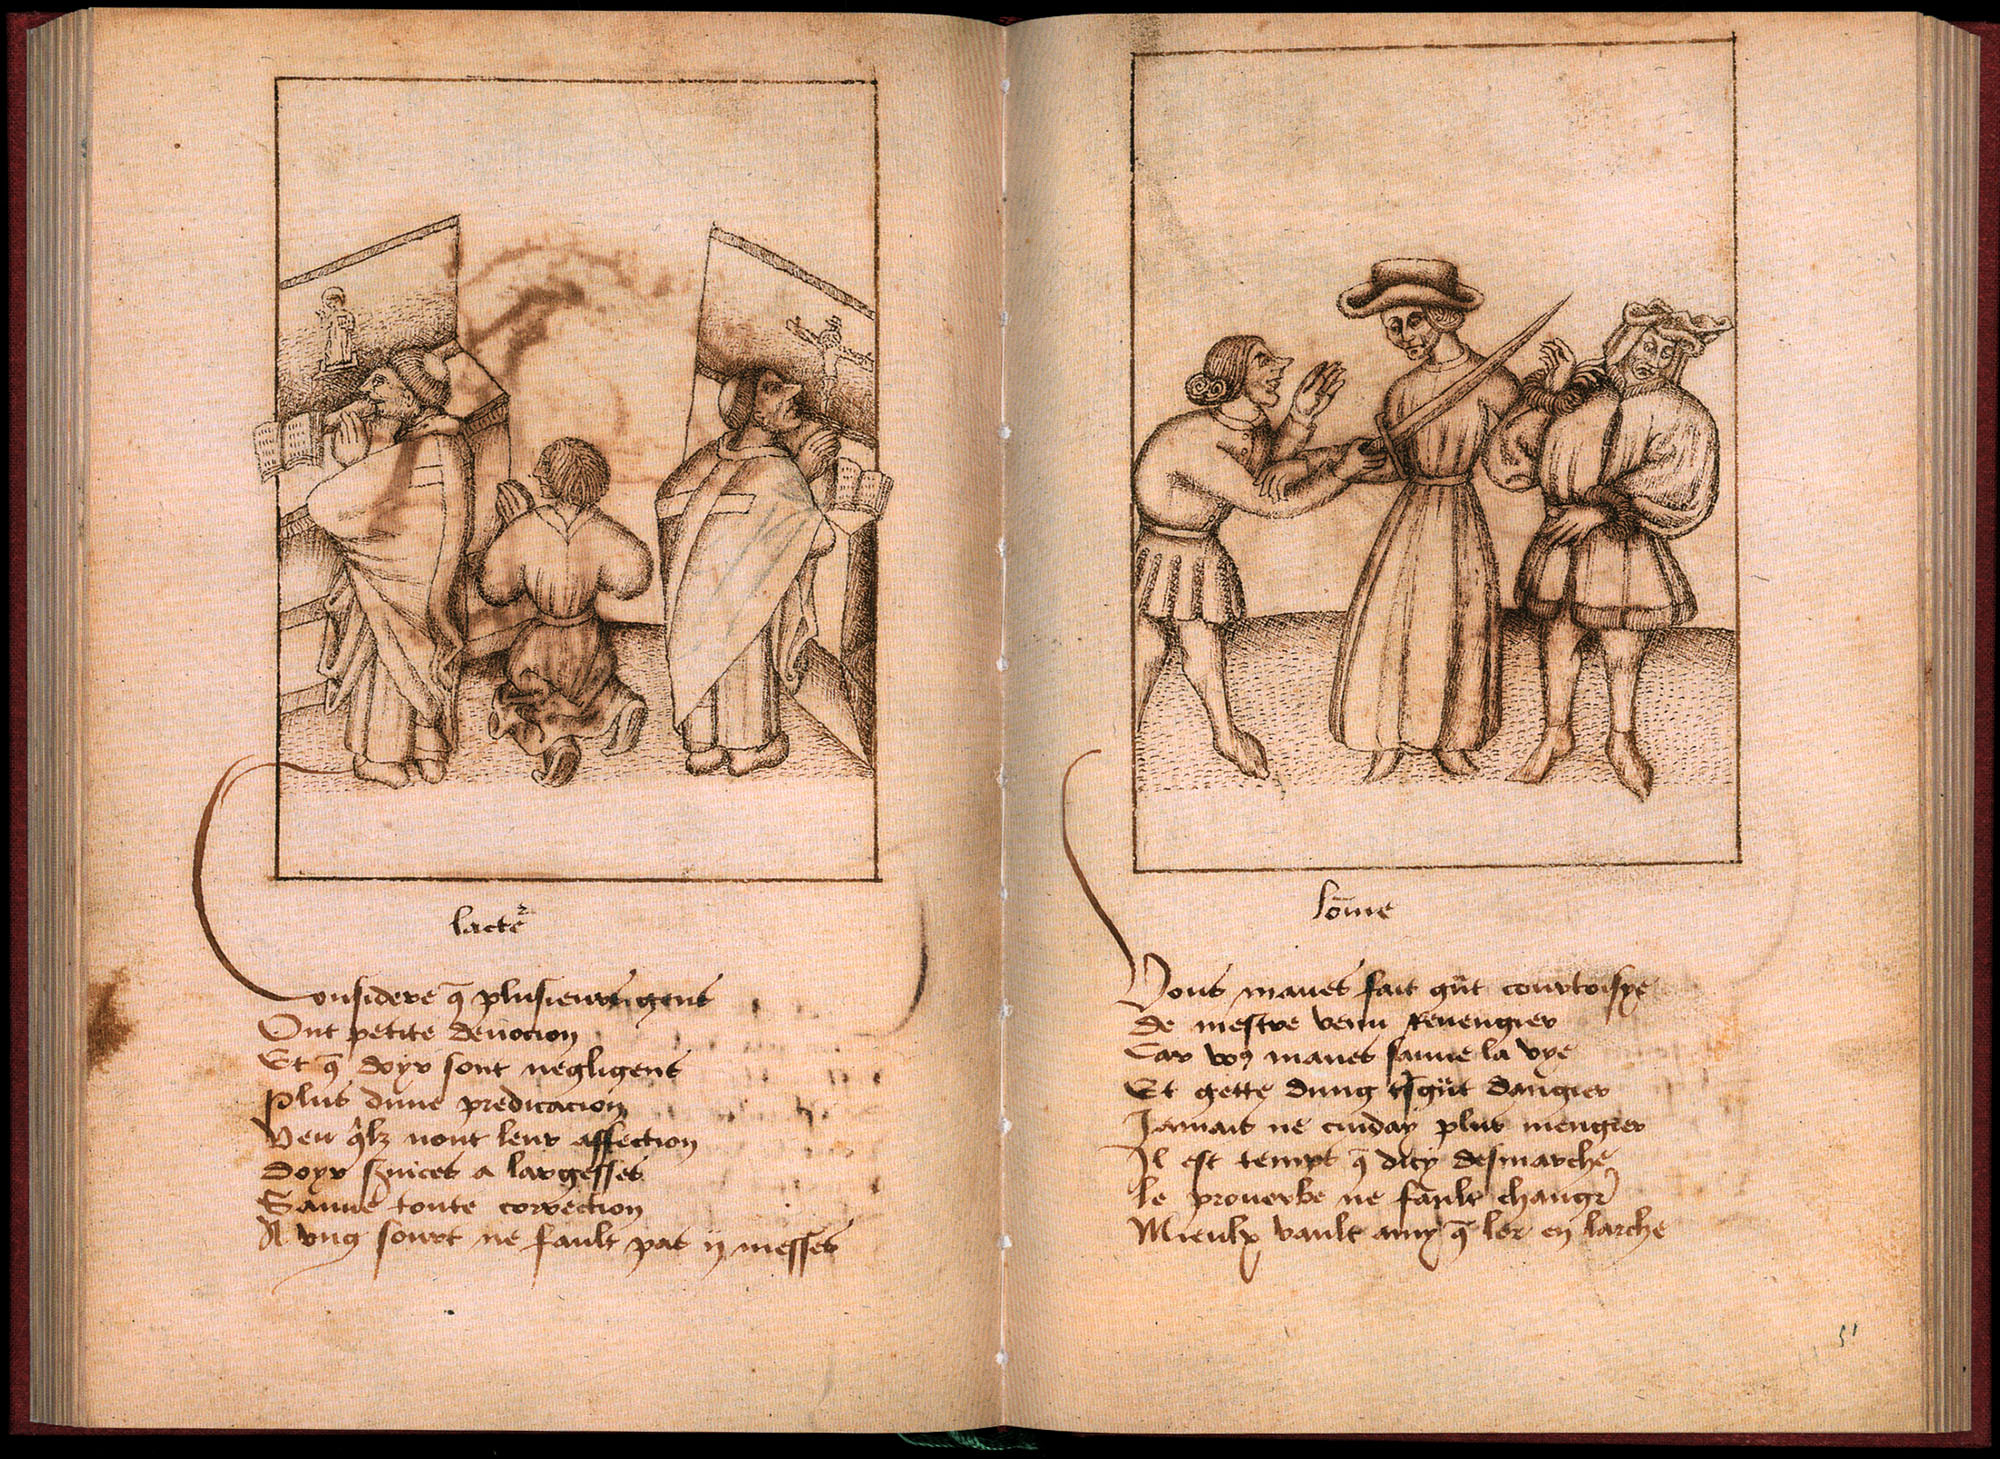 lacteᷣ
Considere q̄ plusieurs gens
Ont petite deuocion
Et q̄ doyr sont negligens
Plus dune predicacion
Veu q̄lz nont leur affection
Doyr s̄uices a largesses
Sauue toute correction
A vng sourt ne fault pas ij messes
lōme
Vous maues fait gūt courtoisye
de mestre venu reuengier
Car vo9 maues sauue la vye
Et gette dung gūt dangier
Jamais ne cuiday plus mengier
Il est temps q̄ dicy desmarche
le prouerbe ne fault changr̄
Mieulx vault amy q̄ lor en larche
51